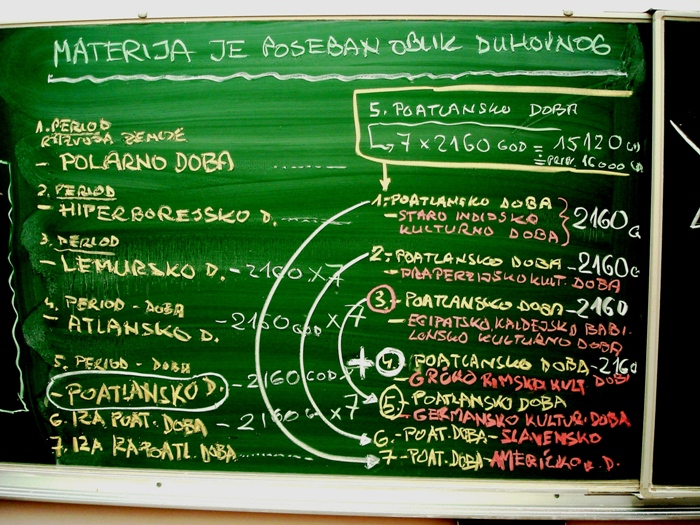 MATERIJA JE POSEBAN OBLIK DUHOVNOG
1. PERIOD
RAZVOJA ZEMLJE
- POLARNO DOBA
2. PERIOD
- HIPERBOREJSKO D.
3. PERIOD
- LEMURSKO D. - 2160 X 7
4. PERIOD - DOBA
- ATLANSKO D. - 2160 GOD X 7
5. PERIOD - DOBA
- POATLANSKO D. - 2160 GOD X 7
6. IZA POAT. DOBA - 2160 G X 7
7. IZA IZA POATL. DOBA
5. POATLANSKO DOBA
7 X 2160 GOD = 15120 G
16000
1. - POATLANSKO DOBA
- STARO INDIJSKO
KULTURNO DOBA } 2160 G
2. - POATLANSKO DOBA - 2160 G
- PRAPERZIJSKO KULT. DOBA
3. - POATLANSKO DOBA - 2160
- EGIPATSKO, KALDEJSKO BABI-
LONSKO KULTURNO DOBA
+ 4. POATLANSKO DOBA - 2160
- GRČKO RIMSKO KULT DOBA
5. - POATLANSKO DOBA
- GERMANSKO KULTUR. DOBA
6. - POAT. DOBA - SLAVENSKO
7 - POAT. DOBA - AMERIČKO K. D.